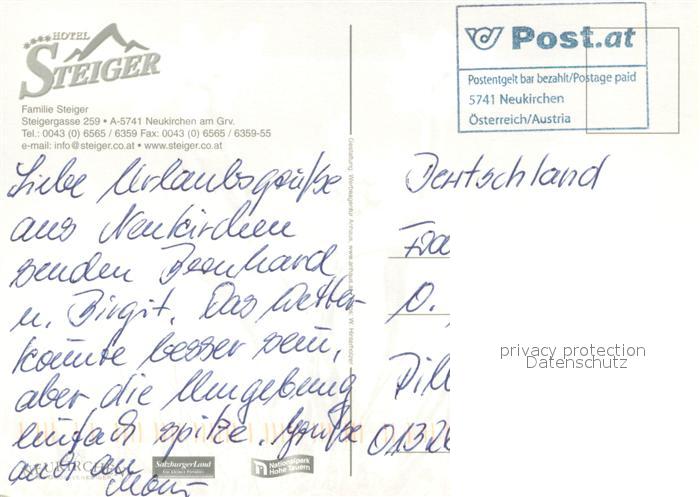 HOTEL
STEIGER
Familie Steiger
Steigergasse 259 • A-5741 Neukirchen am Grv.
Tel.: 0043 (0) 6565 / 6359 Fax: 0043 (0) 6565 / 6359-55
e-mail: info@steiger.co.at • www.steiger.co.at
Liebe Urlaubsgrüße
aus Neukirchen
senden Bernhard
u. Birgit. Das Wetter
könnte besser sein,
aber die Umgebung
einfach spitze. Grüße
auch an
Post.at
Postentgelt bar bezahlt/Postage paid
5741 Neukirchen
Österreich/Austria
Deutschland
O.
privacy protection
Datenschutz
SalzburgerLand
Nationalpark
Hohe Tauern